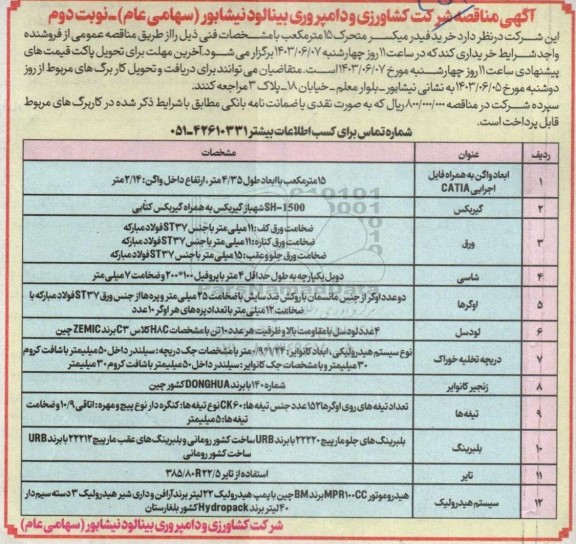 آگهی مناقصه شرکت کشاورزی و دامپروری بینالود نیشابور (سهامی عام) - نوبت دوم
این شرکت درنظر دارد خرید فیدر میکسر متحرک ۱۵ مترمکعب با مشخصات فنی ذیل را از طریق مناقصه عمومی از فروشنده
واجد شرایط خریداری کند که در ساعت ۱۱ روز چهارشنبه ۱۴۰۳/۰۶/۰۷ برگزار می شود. آخرین مهلت برای تحویل پاکت قیمت های
پیشنهادی ساعت ۱۱ روز چهارشنبه مورخ ۱۴۰۳/۰۶/۰۷ است. متقاضیان می توانند برای دریافت و تحویل کاربرگ های مربوط از روز
دوشنبه مورخ ۱۴۰۳/۰۶/۰۵ به نشانی نیشابور - بلوار معلم - خیابان ۱۸ - پلاک ۳ مراجعه کنند.
سپرده شرکت در مناقصه ۸۰۰/۰۰۰/۰۰۰ ریال که به صورت نقدی یا ضمانت نامه بانکی مطابق با شرایط ذکر شده در کاربرگ های مربوط
قابل پرداخت است.
شماره تماس برای کسب اطلاعات بیشتر ۴۲۶۱۰۳۳۱-۰۵۱
ردیف عنوان مشخصات
۱ ابعاد واگن به همراه فایل اجرایی CATIA ۱۵ مترمکعب با ابعاد طول ۴/۳۵ متر، ارتفاع داخل واگن: ۲/۱۴ متر
۲ گیربکس SH-1500 شهباز گیربکس به همراه گیربکس کتابی
۳ ورق ضخامت ورق کف: ۱۱ میلی متر با جنس ST37 فولاد مبارکه
ضخامت ورق کناره: ۱۱ میلی متر با جنس ST37 فولاد مبارکه
ضخامت ورق جلو و عقب: ۱۵ میلی متر با جنس ST37 فولاد مبارکه
۴ شاسی دوبل یکپارچه به طول حداقل ۴ متر با پروفیل ۱۰۰*۲۰۰ و ضخامت ۷ میلی متر
۵ اوگرها دو عدد اوگر از جنس مانسمان با روکش ضد سایش با ضخامت ۲۵ میلی متر و پره ها از جنس ورق ST37 فولاد مبارکه با
ضخامت ۱۲ میلی متر با تعداد پره های هر اوگر ۱۰ عدد
۶ لودسل ۴ عدد لودسل با مقاومت بالا و ظرفیت هر عدد ۱۰ تن با مشخصات HAC کلاس C3 برند ZEMIC چین
۷ دریچه تخلیه خوراک نوع سیستم هیدرولیکی، ابعاد کانوایر: متر با مشخصات جک دریچه: سیلندر داخل ۵۰ میلیمتر با شافت کروم
۳۰ میلیمتر و با مشخصات جک کانوایر: سیلندر داخل ۵۰ میلیمتر با شافت کروم ۳۰ میلیمتر
۸ زنجیر کانوایر شماره ۱۴۰ با برند DONGHUA کشور چین
۹ تیغه ها تعداد تیغه های روی اوگرها ۱۵۲ عدد جنس تیغه ها: CK60 نوع تیغه ها: کنگره دار نوع پیچ و مهره: اتاقی ۱۰/۹ و ضخامت
تیغه ها: ۵ میلیمتر
۱۰ بلبرینگ بلبرینگ های جلو مارپیچ ۲۲۲۲۰ با برند URB ساخت کشور رومانی و بلبرینگ های عقب مارپیچ ۲۲۲۱۲ با برند URB
ساخت کشور رومانی
۱۱ تایر استفاده از تایر ۳۸۵/۸۰R۲۲/۵
۱۲ سیستم هیدرولیک هیدروموتور MPR100CC برند BM چین با پمپ هیدرولیک ۲۲ لیتر برند آرافن و داری شیر هیدرولیک ۳ دسته سیم دار
۴۰ لیتر برند Hydropack کشور بلغارستان
شرکت کشاورزی و دامپروری بینالود نیشابور (سهامی عام)